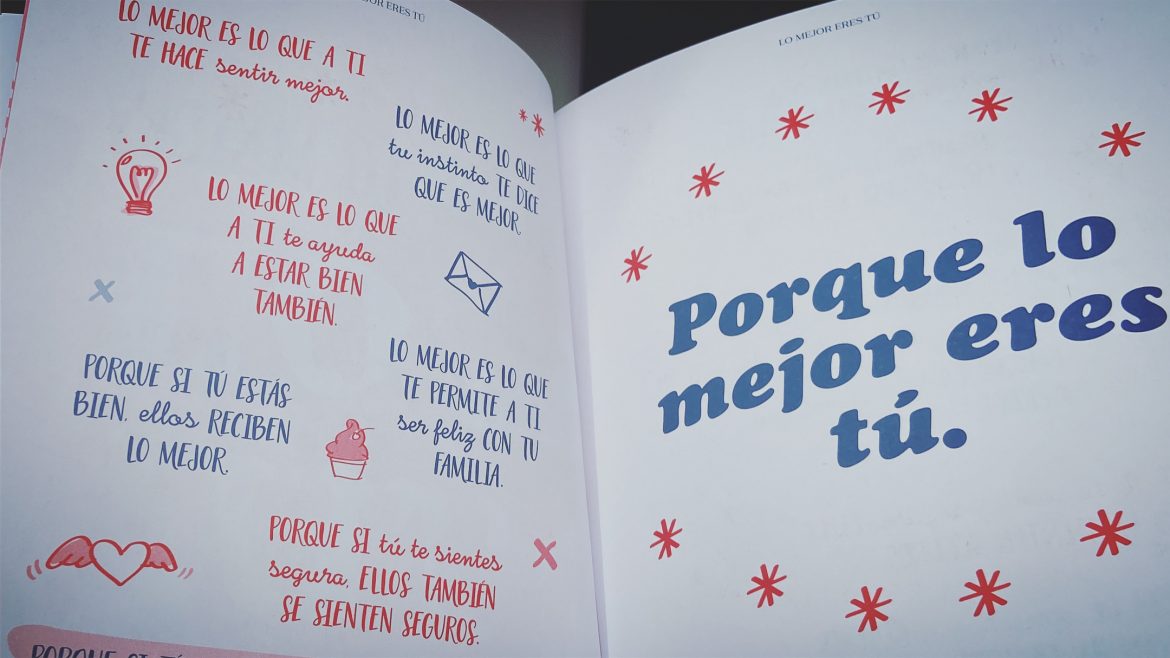 JOR ERES TÚ
LO MEJOR ES LO QUE A TI
TE HACE sentir mejor.
LO MEJOR ES LO QUE
tu instinto TE DICE
QUE ES MEJOR
LO MEJOR ES LO QUE
A TI te ayuda
A ESTAR BIEN
TAMBIÉN.
LO MEJOR ES LO QUE
TE PERMITE A TI
ser feliz CON TU
FAMILIA.
PORQUE SI TÚ ESTÁS
BIEN, ellos RECIBEN
LO MEJOR.
PORQUE SI tú te sientes
segura, ELLOS TAMBIÉN
SE SIENTEN SEGUROS.
PORQUE SI TÚ
LO MEJOR ERES TÚ
Porque lo
mejor eres
tú.